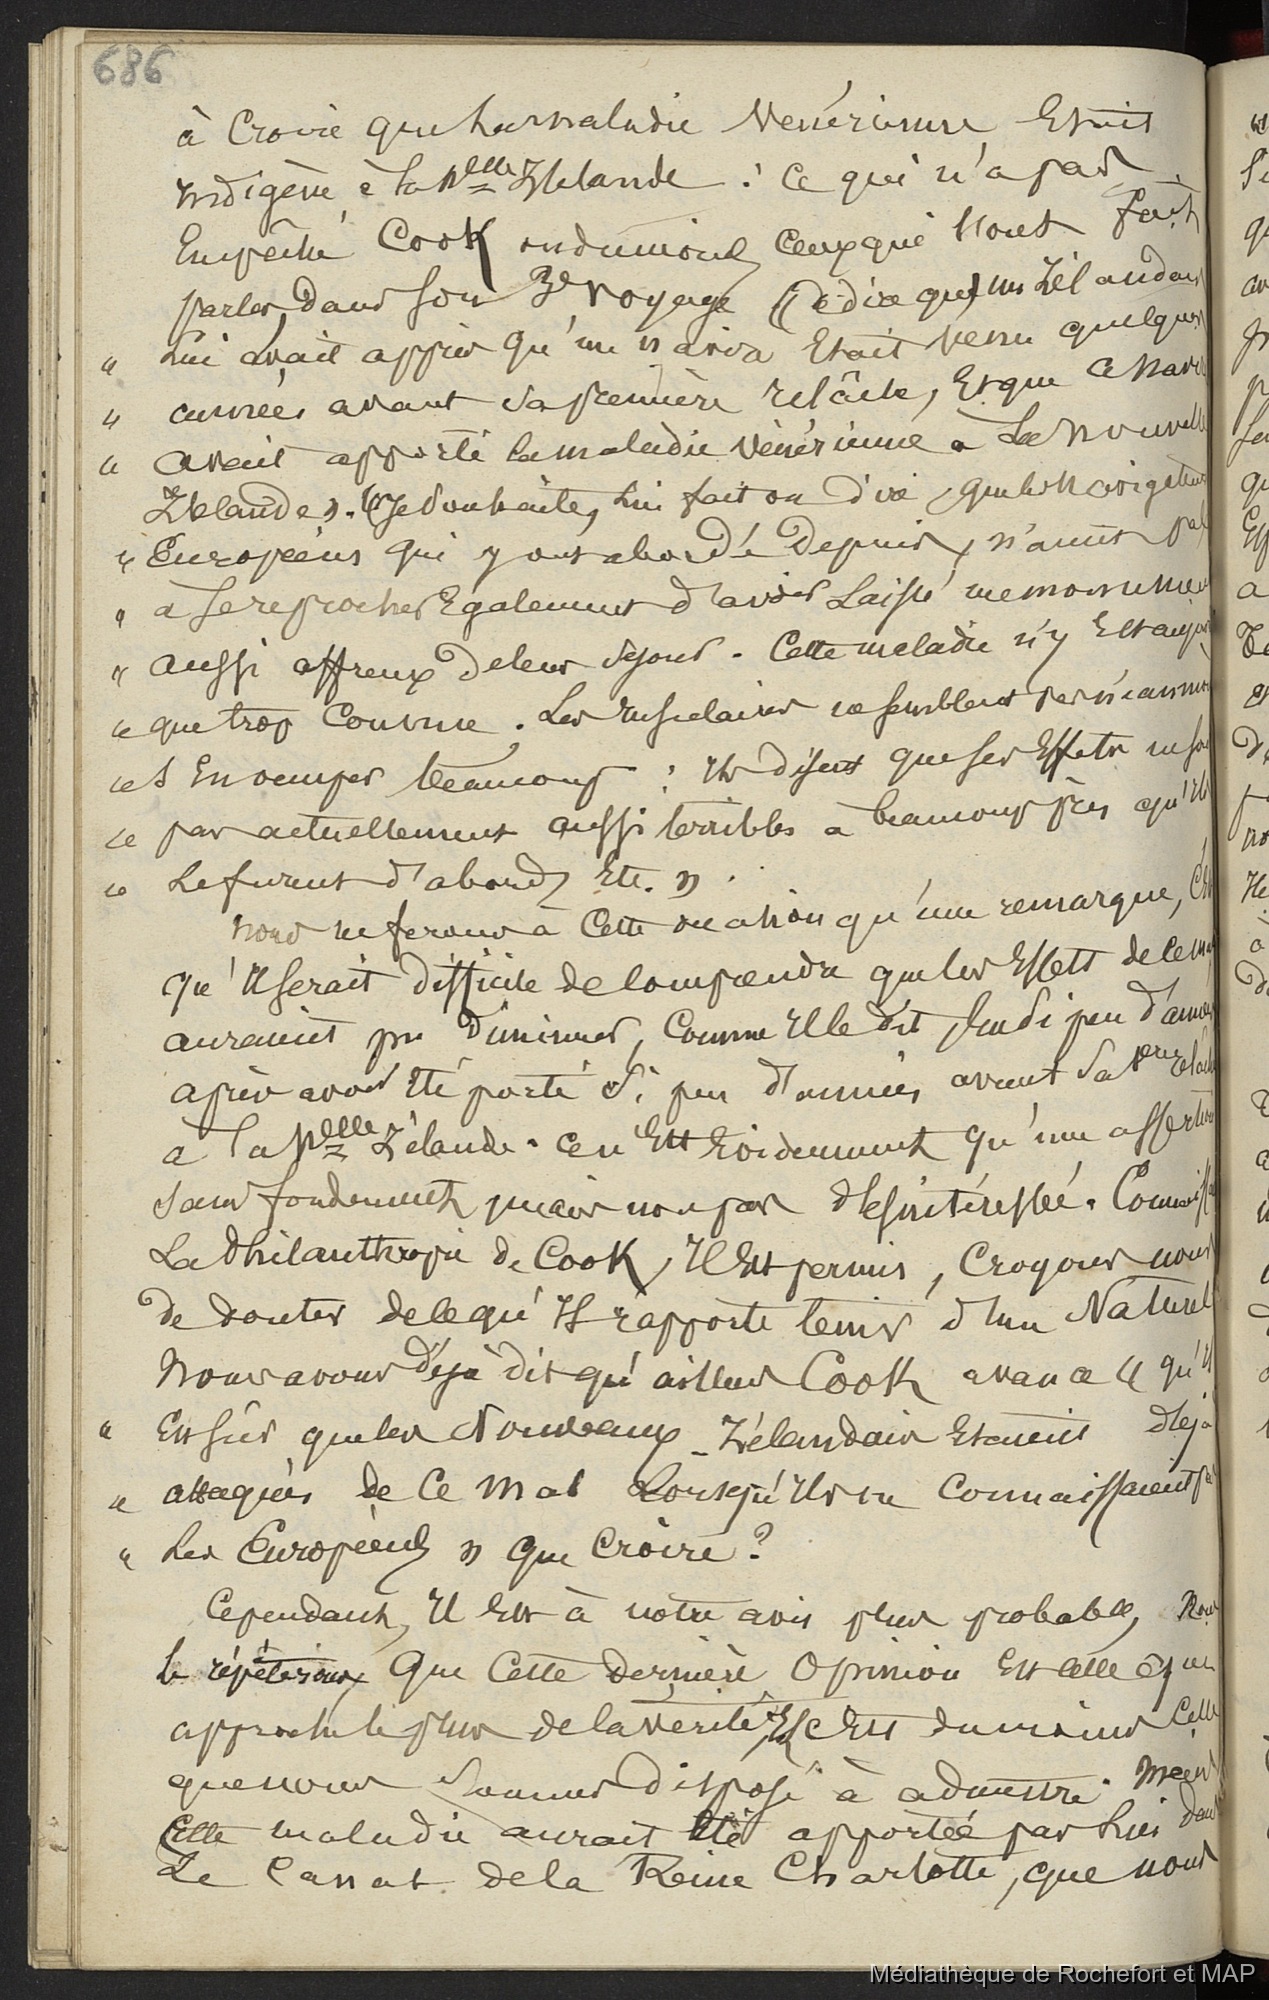 686
à Croire que la maladie Vénérienne Etait
indigène à la Nelle Zélande : Ce qui n'a pas
Empêché Cook ou du moins Ceux qui l'ont fait
parler dans son 3e voyage de dire qu'un Zélandais
" lui avait appris qu'un navire Etait venu quelques
" années avant sa première relâche, Et que Ce navire
" avait apporté la maladie vénérienne à La Nouvelle
Zélande ". " Je souhaite, lui fait on dire, que les Navigateurs
" Européens qui y ont abordé Depuis, n'aient pas
" à se reprocher Egalement d'avoir Laissé un monument
" aussi affreux de leur séjour. Cette maladie n'y Est aujourd'hui
" que trop Connue. Les Insulaires ne semblent pas néanmoins
" s'En occuper beaucoup : Ils disent que ses Effets ne sont
" pas actuellement aussi terribles à beaucoup près qu'ils
" Le furent d'abord Etc. "
Nous ne ferons à Cette occasion qu'une remarque, C'Est
qu'Il serait difficile de Comprendre que les Effets de Ce mal
auraient pu diminuer, Comme Il le dit, En si peu d'années
après avoir Eté porté si peu d'années avant sa 1ere relâche
à la Nelle Zélande. Ce n'Est Evidemment qu'une assertion
sans fondement, mais non pas désintéressée. Connaissant
La Philanthropie de Cook, Il Est permis, Croyons nous
de douter de Ce qu'Il rapporte tenir d'un Naturel
Nous avons déjà dit qu'ailleurs Cook avance " qu'Il
" Est sûr que les Nouveaux-Zélandais Etaient déjà
" attaqués de Ce mal Lorsqu'Ils ne Connaissaient pas
" Les Européens " Que Croire ?
Cependant, Il Est à notre avis plus probable, Nous
le répéterions, Que Cette dernière Opinion Est Celle qui
approche le plus de la vérité, Et C'Est du moins Celle
que nous sommes disposé à admettre. Mais
Cette maladie aurait Eté apportée par lui dans
Le Canal de la Reine Charlotte, que nous
Médiathèque de Rochefort et MAP